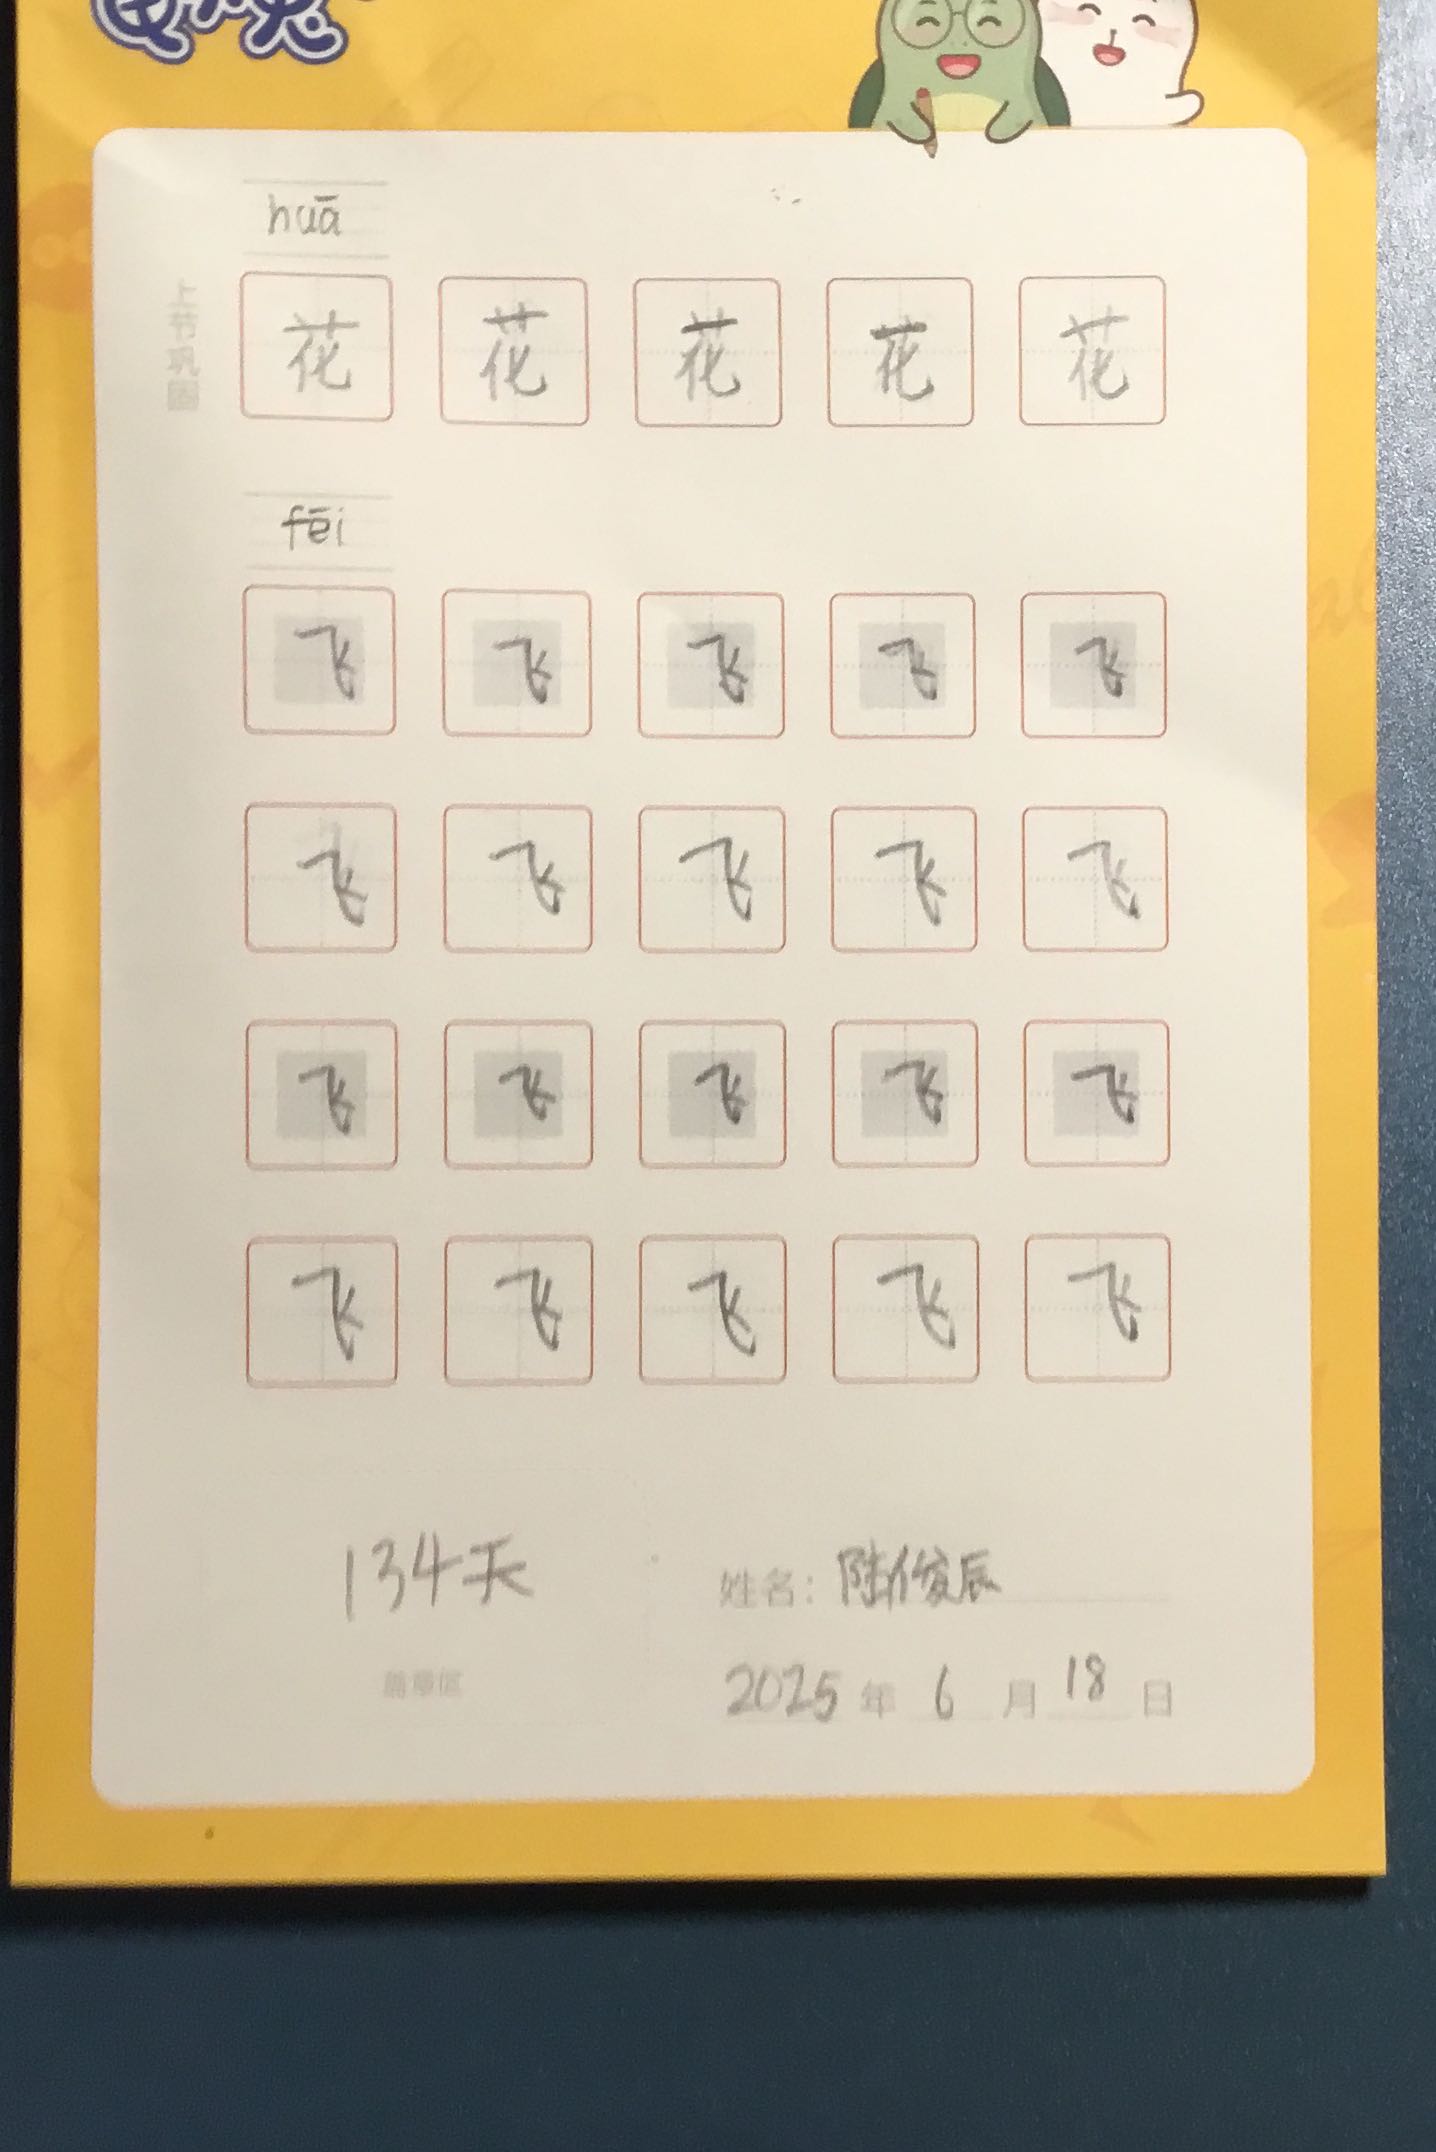 huā
上节巩固
花 花 花 花 花
fēi
飞 飞 飞 飞 飞
飞 飞 飞 飞 飞
飞 飞 飞 飞 飞
飞 飞 飞 飞 飞
134天
姓名：陆俊辰
盖章区
2025年 6 月 18 日